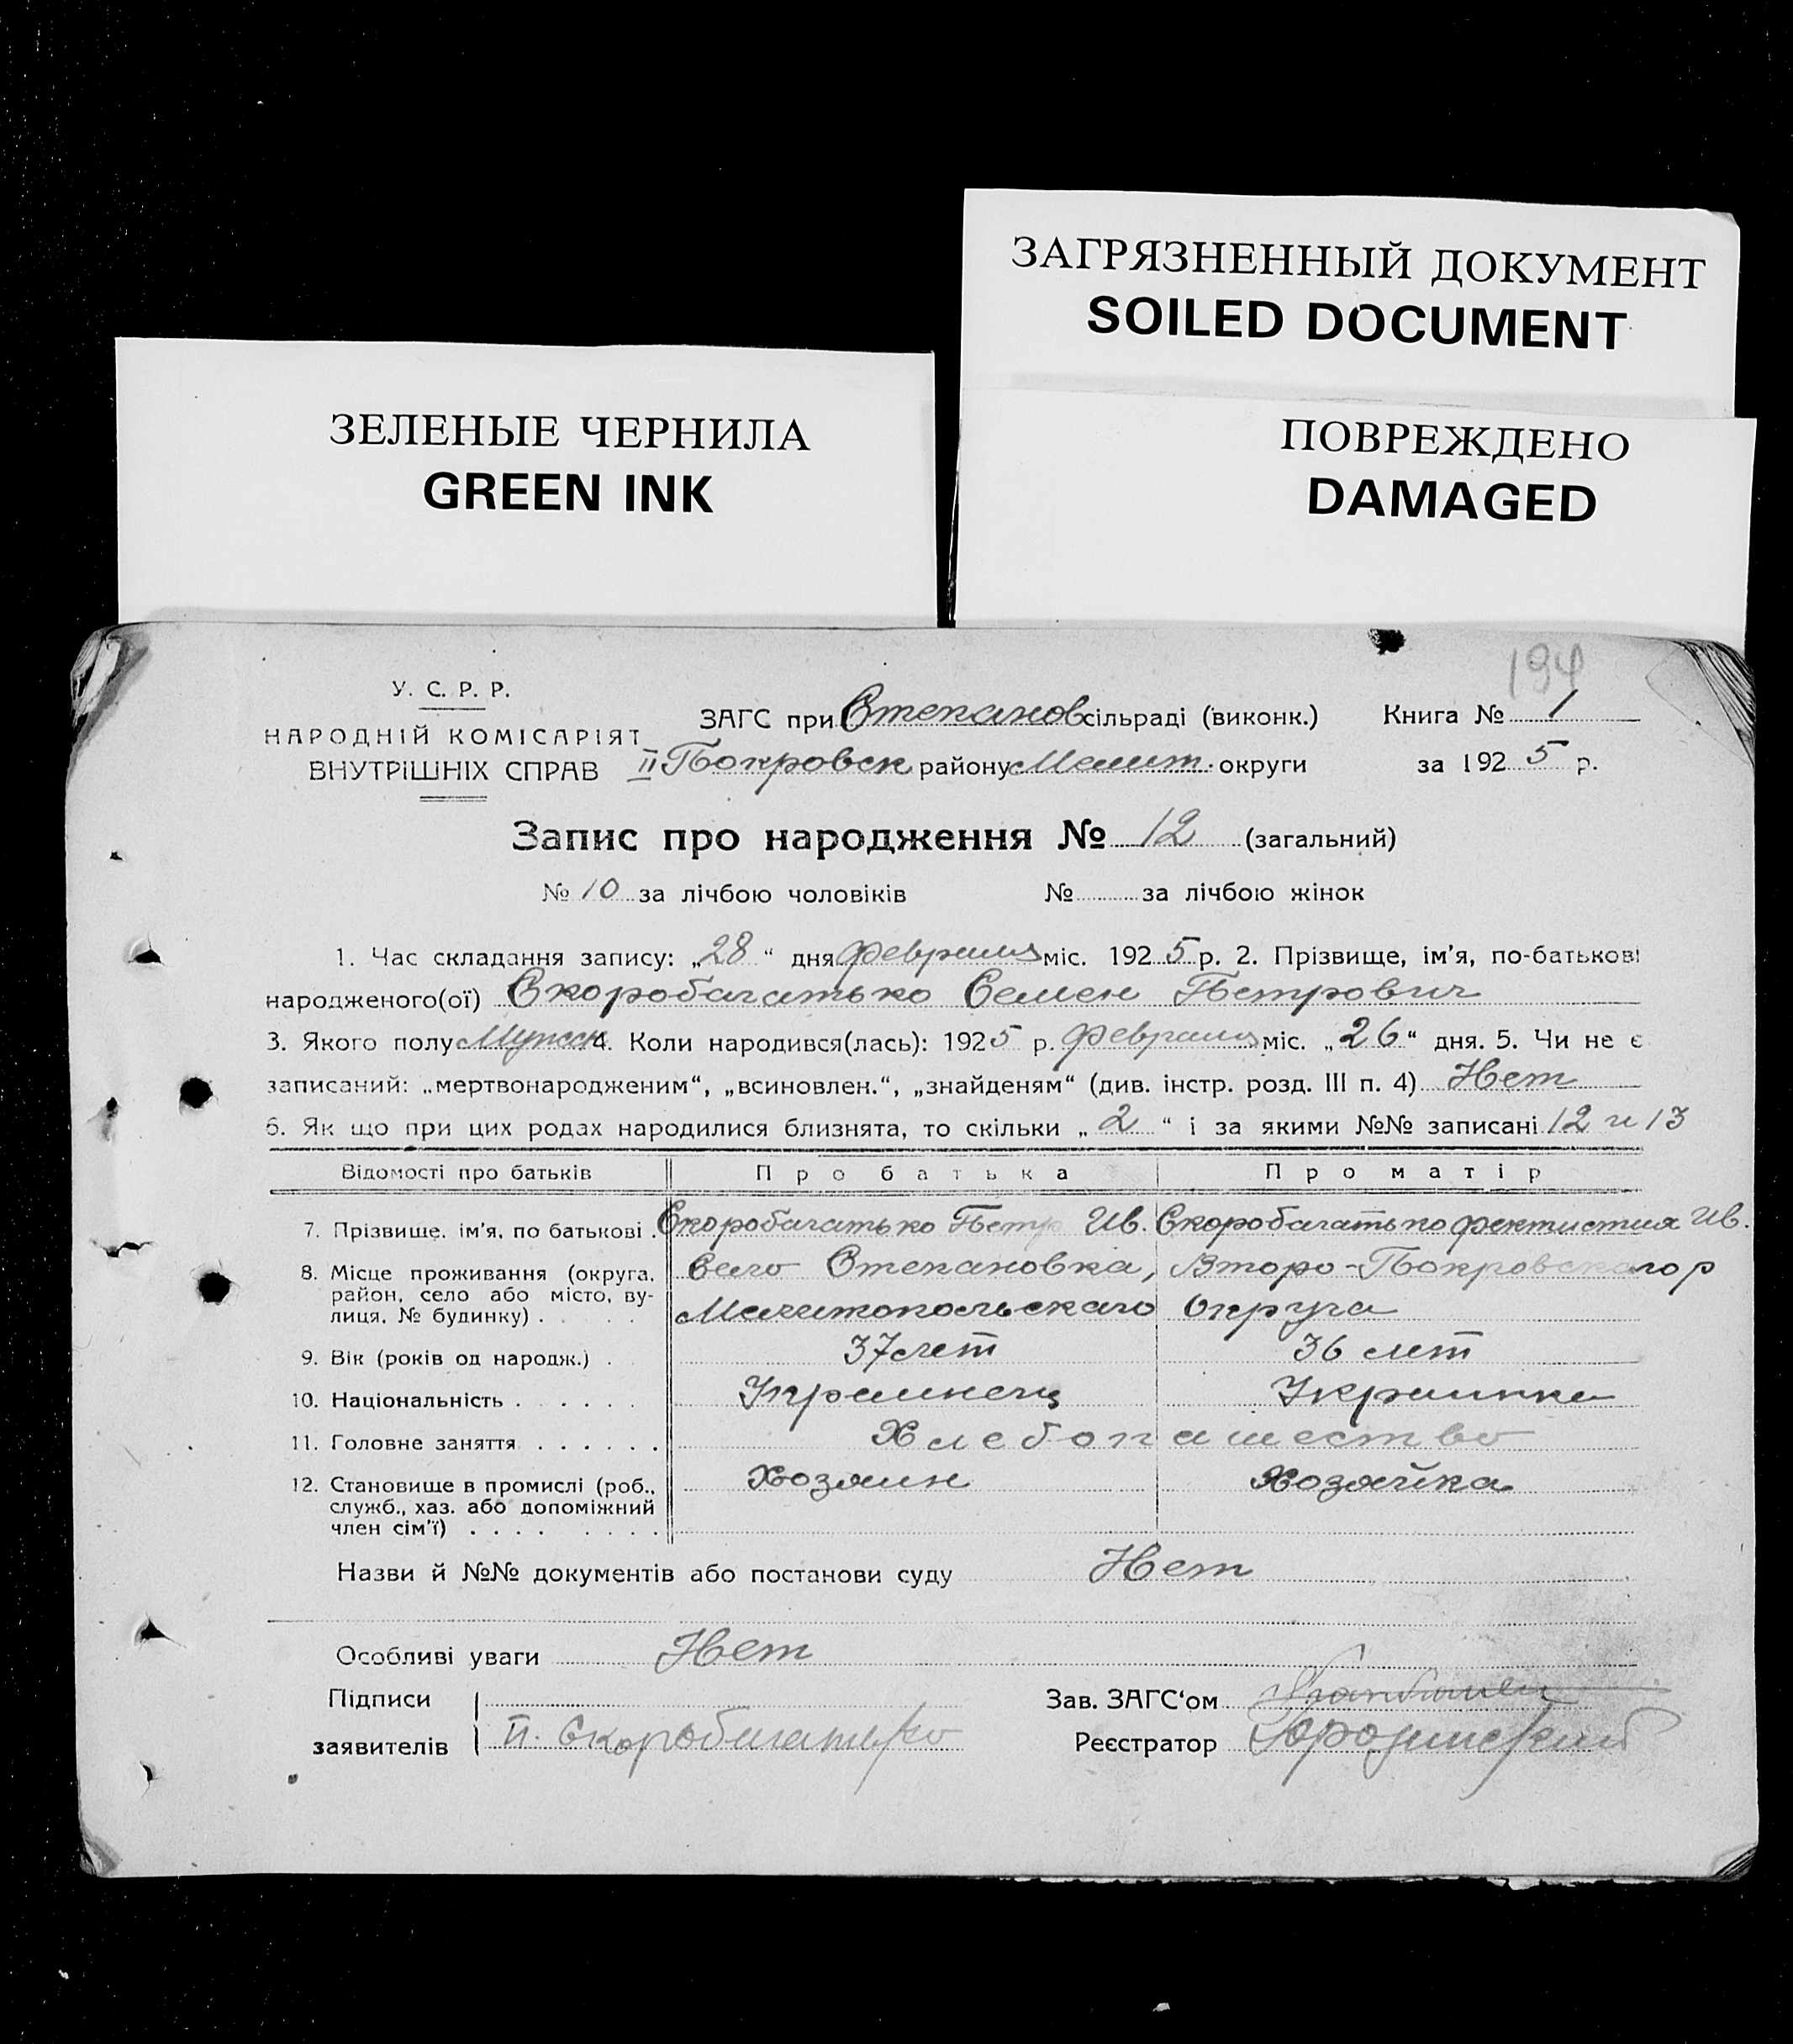 ЗАГРЯЗНЕННЫЙ ДОКУМЕНТ
SOILED DOCUMENT
ЗЕЛЕНЫЕ ЧЕРНИЛА
GREEN INK
ПОВРЕЖДЕНО
DAMAGED
194
У. С. Р. Р.
НАРОДНІЙ КОМІСАРІЯТ
ВНУТРІШНІХ СПРАВ
ЗАГС при Степанов сільраді (виконк.) Книга № 1
II Покровск району Мелит. округи за 1925 р.
Запис про народження № 12 (загальний)
№ 10 за лічбою чоловіків № за лічбою жінок
1. Час складання запису: „28“ дня февраля міс. 1925 р. 2. Прізвище, ім'я, по-батькові
народженого(ої) Скоробагатько Семен Петрович
3. Якого полу Мужск 4. Коли народився(лась): 1925 р. февраля міс. „26“ дня. 5. Чи не є
записаний: „мертвонародженим“, „всиновлен.“, „знайденям“ (див. інстр. розд. III п. 4) Нет
6. Як що при цих родах народилися близнята, то скільки „2“ і за якими №№ записані 12 и 13
Відомості про батьків Про батька Про матір
7. Прізвище, ім'я, по батькові . Скоробагатько Петр Ив. Скоробагатько Фектистия Ив.
8. Місце проживання (округа, район, село або місто, вулиця, № будинку) . . . . Село Степановка, Второ-Покровского р
Мелитопольскаго Округа
9. Вік (років од народж.) . 37 лет 36 лет
10. Національність . . . . . . Украинец Украинка
11. Головне заняття . . . . . . Хлебопашество
12. Становище в промислі (роб., служб., хаз. або допоміжний член сім'ї) . . . . . . . . Хозяин Хозяйка
Назви й №№ документів або постанови суду Нет
Особливі уваги Нет
Підписи
заявителів П. Скоробагатько
Зав. ЗАГС‘ом
Реєстратор